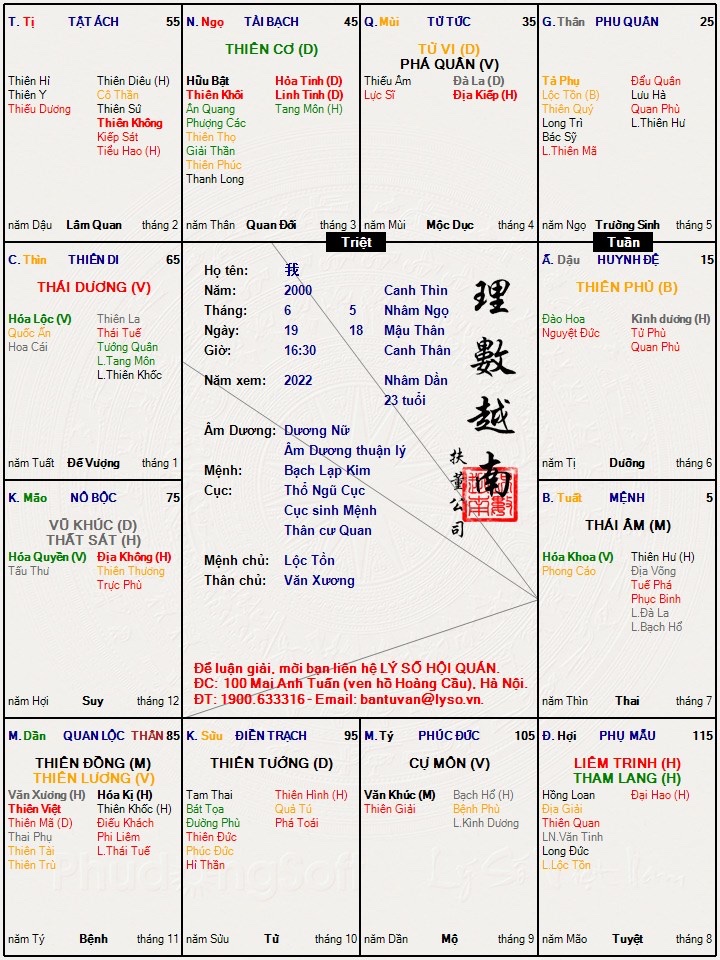 T. Tị TẬT ÁCH 55
Thiên Hỉ Thiên Diêu (H)
Thiên Y Cô Thần
Thiếu Dương Thiên Sứ
Thiên Không
Kiếp Sát
Tiểu Hao (H)
năm Dậu Lâm Quan tháng 2
N. Ngọ TÀI BẠCH 45
THIÊN CƠ (D)
Hữu Bật Hỏa Tinh (D)
Thiên Khôi Linh Tinh (D)
Ân Quang Tang Môn (H)
Phượng Các
Thiên Thọ
Giải Thần
Thiên Phúc
Thanh Long
năm Thân Quan Đới tháng 3
Q. Mùi TỬ TỨC 35
TỬ VI (D)
PHÁ QUÂN (V)
Thiếu Âm Đà La (D)
Lực Sĩ Địa Kiếp (H)
năm Mùi Mộc Dục tháng 4
G. Thân PHU QUÂN 25
Tả Phụ Đẩu Quân
Lộc Tồn (B) Lưu Hà
Thiên Quý Quan Phủ
Long Trì L.Thiên Hư
Bác Sỹ
L.Thiên Mã
năm Ngọ Trường Sinh tháng 5
Triệt
Tuần
C. Thìn THIÊN DI 65
THÁI DƯƠNG (V)
Hóa Lộc (V) Thiên La
Quốc Ấn Thái Tuế
Hoa Cái Tướng Quân
L.Tang Môn
L.Thiên Khốc
năm Tuất Đế Vượng tháng 1
Họ tên: 我
Năm: 2000 Canh Thìn
Tháng: 6 5 Nhâm Ngọ
Ngày: 19 18 Mậu Thân
Giờ: 16:30 Canh Thân
Năm xem: 2022 Nhâm Dần
23 tuổi
Âm Dương: Dương Nữ
Âm Dương thuận lý
Mệnh: Bạch Lạp Kim
Cục: Thổ Ngũ Cục
Cục sinh Mệnh
Thân cư Quan
Mệnh chủ: Lộc Tồn
Thân chủ: Văn Xương
理數越南
扶董公司
Để luận giải, mời bạn liên hệ LÝ SỐ HỘI QUÁN.
ĐC: 100 Mai Anh Tuấn (ven hồ Hoàng Cầu), Hà Nội.
ĐT: 1900.633316 - Email: bantuvan@lyso.vn.
Ấ. Dậu HUYNH ĐỆ 15
THIÊN PHỦ (B)
Đào Hoa Kình dương (H)
Nguyệt Đức Tử Phù
Quan Phủ
năm Tị Dưỡng tháng 6
K. Mão NÔ BỘC 75
VŨ KHÚC (D)
THẤT SÁT (H)
Hóa Quyền (V) Địa Không (H)
Tấu Thư Thiên Thương
Trực Phù
năm Hợi Suy tháng 12
B. Tuất MỆNH 5
THÁI ÂM (M)
Hóa Khoa (V) Thiên Hư (H)
Phong Cáo Địa Võng
Tuế Phá
Phục Binh
L.Đà La
L.Bạch Hổ
năm Thìn Thai tháng 7
M. Dần QUAN LỘC THÂN 85
THIÊN ĐỒNG (M)
THIÊN LƯƠNG (V)
Văn Xương (H) Hóa Kị (H)
Thiên Việt Thiên Khốc (H)
Thiên Mã (D) Điếu Khách
Thai Phụ Phi Liêm
Thiên Tài L.Thái Tuế
Thiên Trù
năm Tý Bệnh tháng 11
K. Sửu ĐIỀN TRẠCH 95
THIÊN TƯỚNG (D)
Tam Thai Thiên Hình (H)
Bát Tọa Quả Tú
Đường Phù Phá Toái
Thiên Đức
Phúc Đức
Hỉ Thần
năm Sửu Tử tháng 10
M. Tý PHÚC ĐỨC 105
CỰ MÔN (V)
Văn Khúc (M) Bạch Hổ (H)
Thiên Giải Bệnh Phù
L.Kình Dương
năm Dần Mộ tháng 9
Đ. Hợi PHỤ MẪU 115
LIÊM TRINH (H)
THAM LANG (H)
Hồng Loan Đại Hao (H)
Địa Giải
Thiên Quan
LN.Văn Tinh
Long Đức
L.Lộc Tồn
năm Mão Tuyệt tháng 8